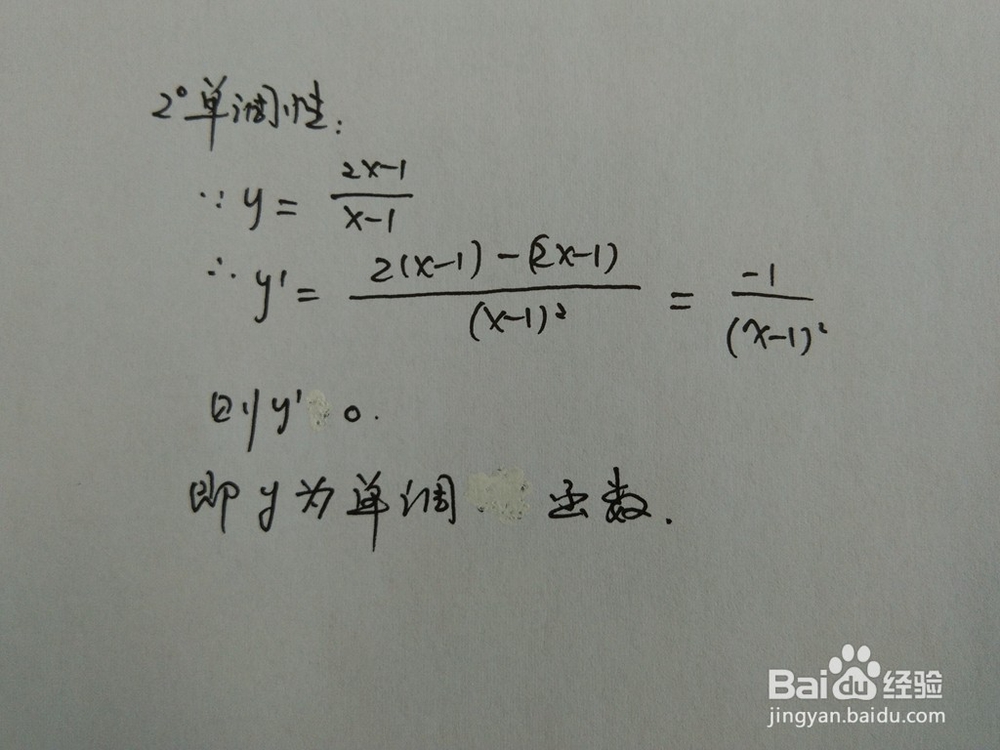 2°单调性:
∵ y = (2x-1)/(x-1)
∴ y' = (2(x-1)-(2x-1))/(x-1)² = -1/(x-1)²
则y' 0.
即y为单调 函数.
Baidu经验
jingyan.baidu.com